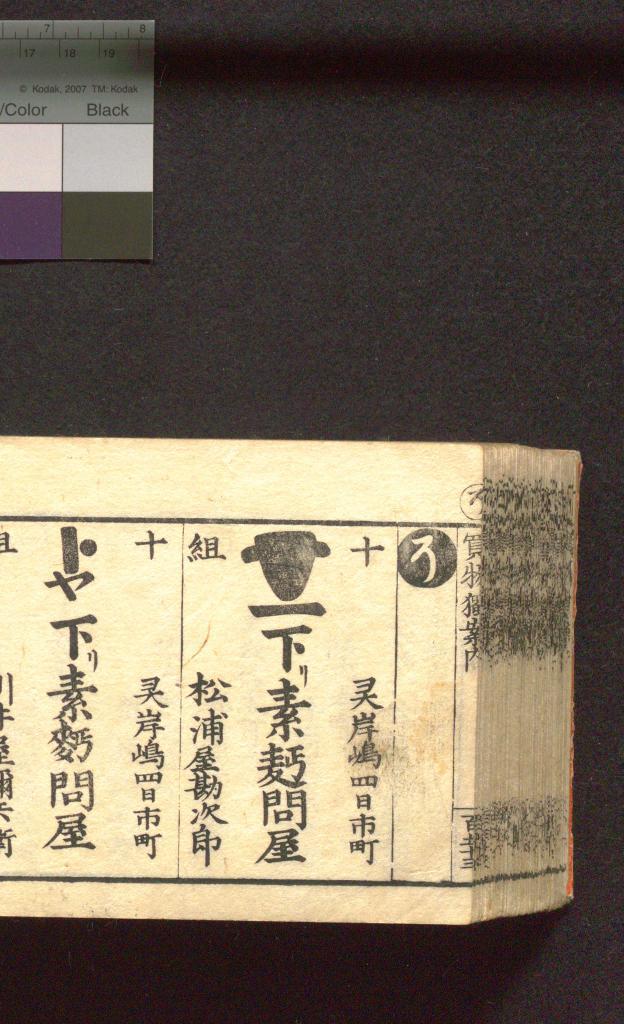 7 8
17 18 19
© Kodak, 2007 TM: Kodak
/Color Black
買物獨案内
う
十
灵岸嶋四日市町
下リ素麪問屋
組
松浦屋勘次郎
十
灵岸嶋四日市町
トヤ
下リ素麪問屋
組
川井屋彌兵衛